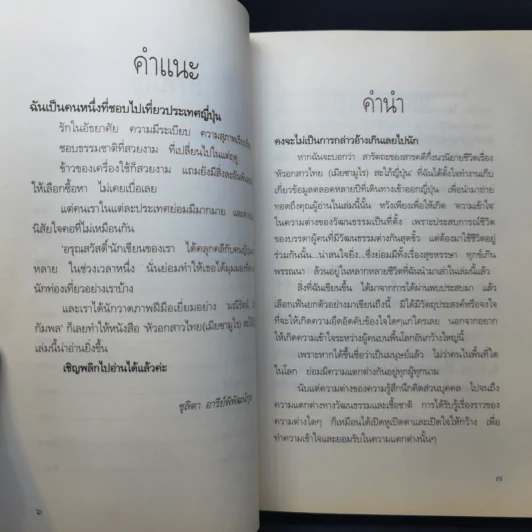 คำแนะ
ฉันเป็นคนหนึ่งที่ชอบไปเที่ยวประเทศญี่ปุ่น
รักในอัธยาศัย ความมีระเบียบ ความสุภาพเรียบร้อย
ชอบธรรมชาติที่สวยงาม ที่เปลี่ยนไปในแต่ละฤดู
ข้าวของเครื่องใช้ก็สวยงาม แถมยังมีสิ่งละอันพันละ
ให้เลือกซื้อหา ไม่เคยเบื่อเลย
แต่คนเราในแต่ละประเทศย่อมมีมากมาย และต่าง
นิสัยใจคอที่ไม่เหมือนกัน
'อรุณสวัสดิ์'นักเขียนของเรา ได้คลุกคลีกับคนญี่ปุ่น
หลาย ในช่วงเวลาหนึ่ง นั่นย่อมทำให้เธอได้มุมมอง
นักท่องเที่ยวอย่างเราบ้าง
และเราได้นักวาดภาพฝีมือเยี่ยมอย่าง
กัมพล' ก็เลยทำให้หนังสือ 'หัวอกสาวไทย(เมียซามูไร)
เล่มนี้น่าอ่านยิ่งขึ้น
เชิญพลิกไปอ่านได้แล้วค่ะ
ชูลิตา อารีย์พิพัฒน์กุล
๖
คำนำ
คงจะไม่เป็นการกล่าวอ้างเกินเลยไปนัก
หากฉันจะบอกว่า สารัตถะของสารคดีกึ่งนวนิยายชีวิตเรื่อง
'หัวอกสาวไทย (เมียซามูไร) สะใภ้ญี่ปุ่น' ที่ฉันได้ตั้งใจทำงานเก็บ
เกี่ยวข้อมูลตลอดหลายปีที่เดินทางเข้าออกญี่ปุ่น เพื่อนำมาถ่าย
ทอดถึงคุณผู้อ่านในเล่มนี้นั้น หวังเพียงเพื่อให้เกิด 'ความเข้าใจ'
ในความต่างของวัฒนธรรมเป็นที่ตั้ง เพราะประสบการณ์ชีวิต
ของบรรดาผู้คนที่มีวัฒนธรรมต่างกันสุดขั้ว แต่ต้องมาใช้ชีวิตอยู่
ร่วมกันนั้น...น่าสนใจยิ่ง...ซึ่งย่อมมีทั้งเรื่องสุขหรรษา ทุกข์เกิน
พรรณนา ล้วนอยู่ในหลากหลายชีวิตที่ฉันนำมาเล่าในเล่มนี้แล้ว
สิ่งที่ฉันเขียนขึ้น ได้มาจากการได้ผ่านพบประสบมา แล้ว
เลือกเฟ้นยกตัวอย่างมาเขียนถึงนี้ มิได้มีวัตถุประสงค์หรือจงใจ
ที่จะให้เกิดความอึดอัดคับข้องใจใดๆแก่ใครเลย นอกจากอยาก
ให้เกิดความเข้าใจระหว่างผู้คนบนพื้นโลกอันกว้างใหญ่นี้
เพราะหากได้ขึ้นชื่อว่าเป็นมนุษย์แล้ว ไม่ว่าคนในพื้นที่ใด
ในโลก ย่อมมีความแตกต่างกันอยู่ทุกผู้ทุกนาม
นับแต่ความต่างของความรู้สึกนึกคิดส่วนบุคคล ไปจนถึง
ความแตกต่างทางวัฒนธรรมและเชื้อชาติ การได้รับรู้เรื่องราวของ
ความต่างใดๆ ก็เหมือนได้เปิดหูเปิดตาและเปิดใจให้กว้าง เพื่อ
ทำความเข้าใจและยอมรับในความแตกต่างนั้นๆ
๗